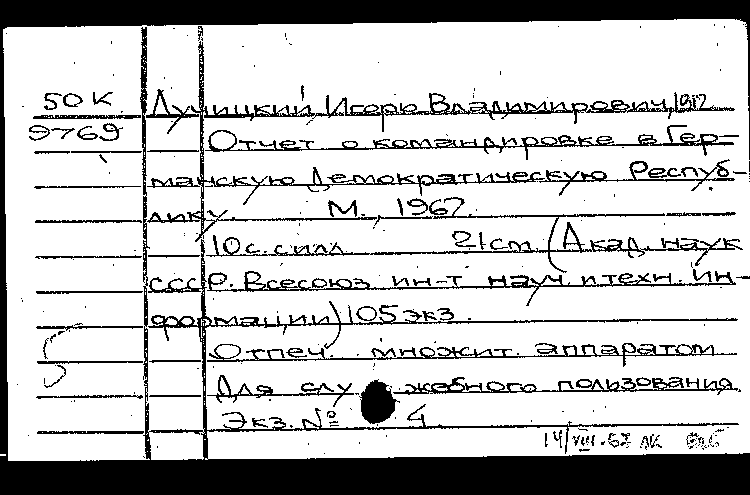 50К Лучицкий Игорь Владимирович, 1912
9769 Отчет о командировке в Гер-
манскую Демократическую Респуб-
лику. М., 1967.
10 с. с илл 21 cm (Акад. наук
СССР. Всесоюз ин-т науч и техн. ин-
формации) 105 экз.
Отпеч множит. аппаратом
Для служебного пользования
Экз. № 4
14/VIII-67